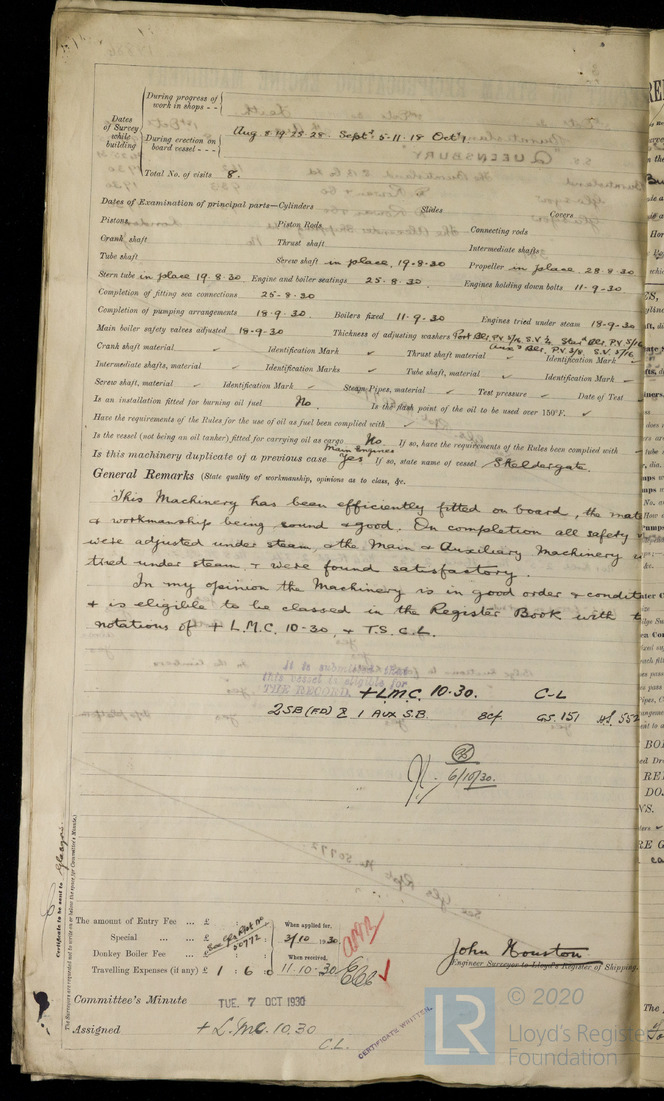 During progress of
work in shops - -
Dates
of Survey
while
building
During erection on
board vessel - - -
Aug 8.19.25.28. Sept 5.11.18 Oct 7
Total No. of visits 8.
Dates of Examination of principal parts—Cylinders Slides Covers
Pistons Piston Rods Connecting rods
Crank shaft Thrust shaft Intermediate shafts
Tube shaft Screw shaft in place. 19-8-30 Propeller in place. 28.8.30
Stern tube in place 19.8.30 Engine and boiler seatings 25.8.30. Engines holding down bolts 11-9-30
Completion of fitting sea connections 25-8-30
Completion of pumping arrangements 18-9-30. Boilers fixed 11-9-30 Engines tried under steam 18-9-30
Main boiler safety valves adjusted 18-9-30 Thickness of adjusting washers Port Blr. P.V. 5/16, S.V. ½ Star Blr. P.V. 5/16
Aux Blr. P.V. 3/8, S.V. 5/16
Crank shaft material Identification Mark ✓ Thrust shaft material ✓ Identification Mark
Intermediate shafts, material ✓ Identification Marks ✓ Tube shaft, material ✓ Identification Mark
Screw shaft, material ✓ Identification Mark ✓ Steam Pipes, material ✓ Test pressure ✓ Date of Test
Is an installation fitted for burning oil fuel No. Is the flash point of the oil to be used over 150°F. ✓
Have the requirements of the Rules for the use of oil as fuel been complied with
Is the vessel (not being an oil tanker) fitted for carrying oil as cargo No If so, have the requirements of the Rules been complied with
Main Engines
Is this machinery duplicate of a previous case Yes If so, state name of vessel Skeldergate.
General Remarks (State quality of workmanship, opinions as to class, &c.
This Machinery has been efficiently fitted on board, the mate
& workmanship being sound & good. On completion all safety
were adjusted under steam, & the Main & Auxiliary Machinery
tried under steam, & were found satisfactory.
In my opinion the Machinery is in good order & condit
& is eligible to be classed in the Register Book with
notations of + L.M.C. 10-30, & T.S. C.L.
It is submitted that
this vessel is eligible for
THE RECORD. + LMC 10.30. C-L
2SB (FD) & 1 Aux S.B.
GS. 151
6/10/30.
Certificate to be sent to Glasgow.
The Surveyors are requested not to write on or below the space for Committee's Minute.
The amount of Entry Fee ... £ : :
Special ... ... £
See Gls Rpt No 50772.
Donkey Boiler Fee ... £
Travelling Expenses (if any) £ 1 : 6 : 0
When applied for,
3/10 1930
When received,
11.10.30
John Houston
Engineer Surveyor to Lloyd's Register of Shipping.
Committee's Minute TUE. 7 OCT 1930
Assigned + L.M.C. 10.30
C.L.
CERTIFICATE WRITTEN.
LR
© 2020
Lloyd's Register
Foundation